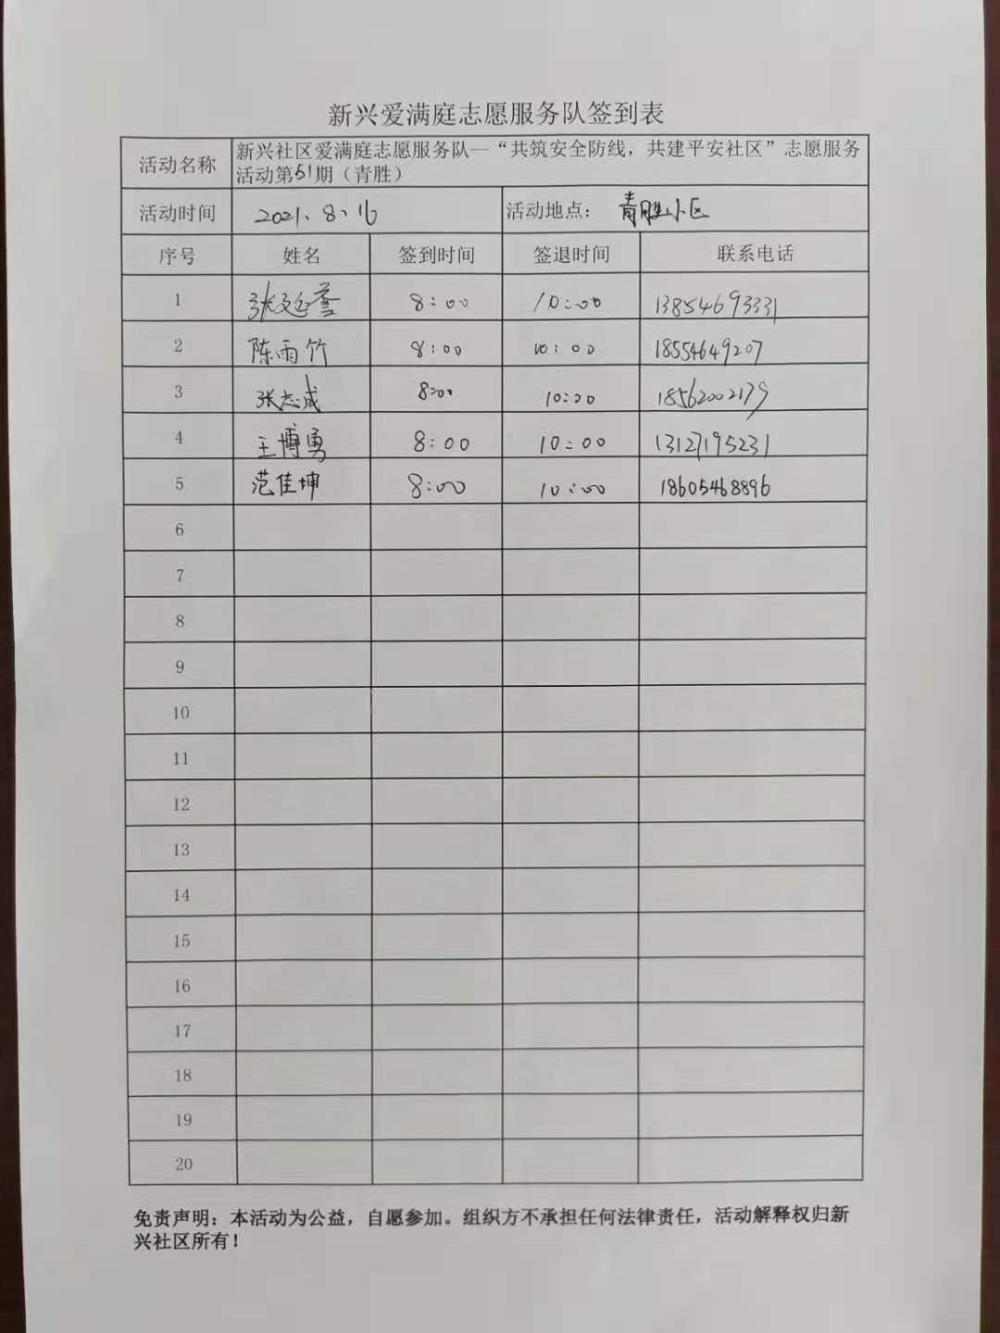 新兴爱满庭志愿服务队签到表
活动名称 新兴社区爱满庭志愿服务队—“共筑安全防线，共建平安社区”志愿服务
活动第51期（青胜）
活动时间 2021、8、16 活动地点： 青胜小区
序号 姓名 签到时间 签退时间 联系电话
1 张廷 8:00 10:00 13854693331
2 陈雨竹 8:00 10:00 18554649207
3 张志成 8:00 10:00 18562002179
4 王博勇 8:00 10:00 13127195231
5 范佳坤 8:00 10:00 18605468896
6
7
8
9
10
11
12
13
14
15
16
17
18
19
20
免责声明：本活动为公益，自愿参加。组织方不承担任何法律责任，活动解释权归新
兴社区所有！